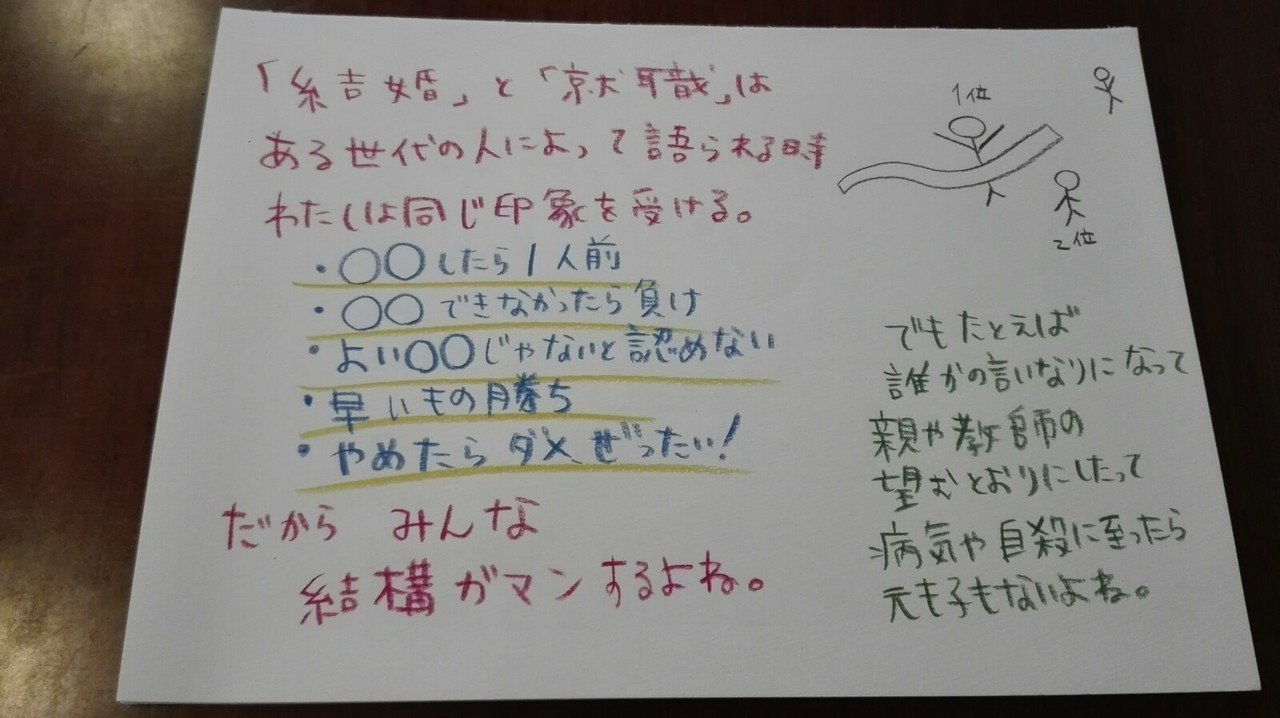 「結婚」と「就職」は
ある世代の人によって語られる時
わたしは同じ印象を受ける。
・○○したら1人前
・○○できなかったら負け
・よい○○じゃないと認めない
・早いもの勝ち
・やめたらダメぜったい!
だから みんな
結構ガマンするよね。
1位
2位
でもたとえば
誰かの言いなりになって
親や教師の
望むとおりにしたって
病気や自殺に至ったら
元も子もないよね。